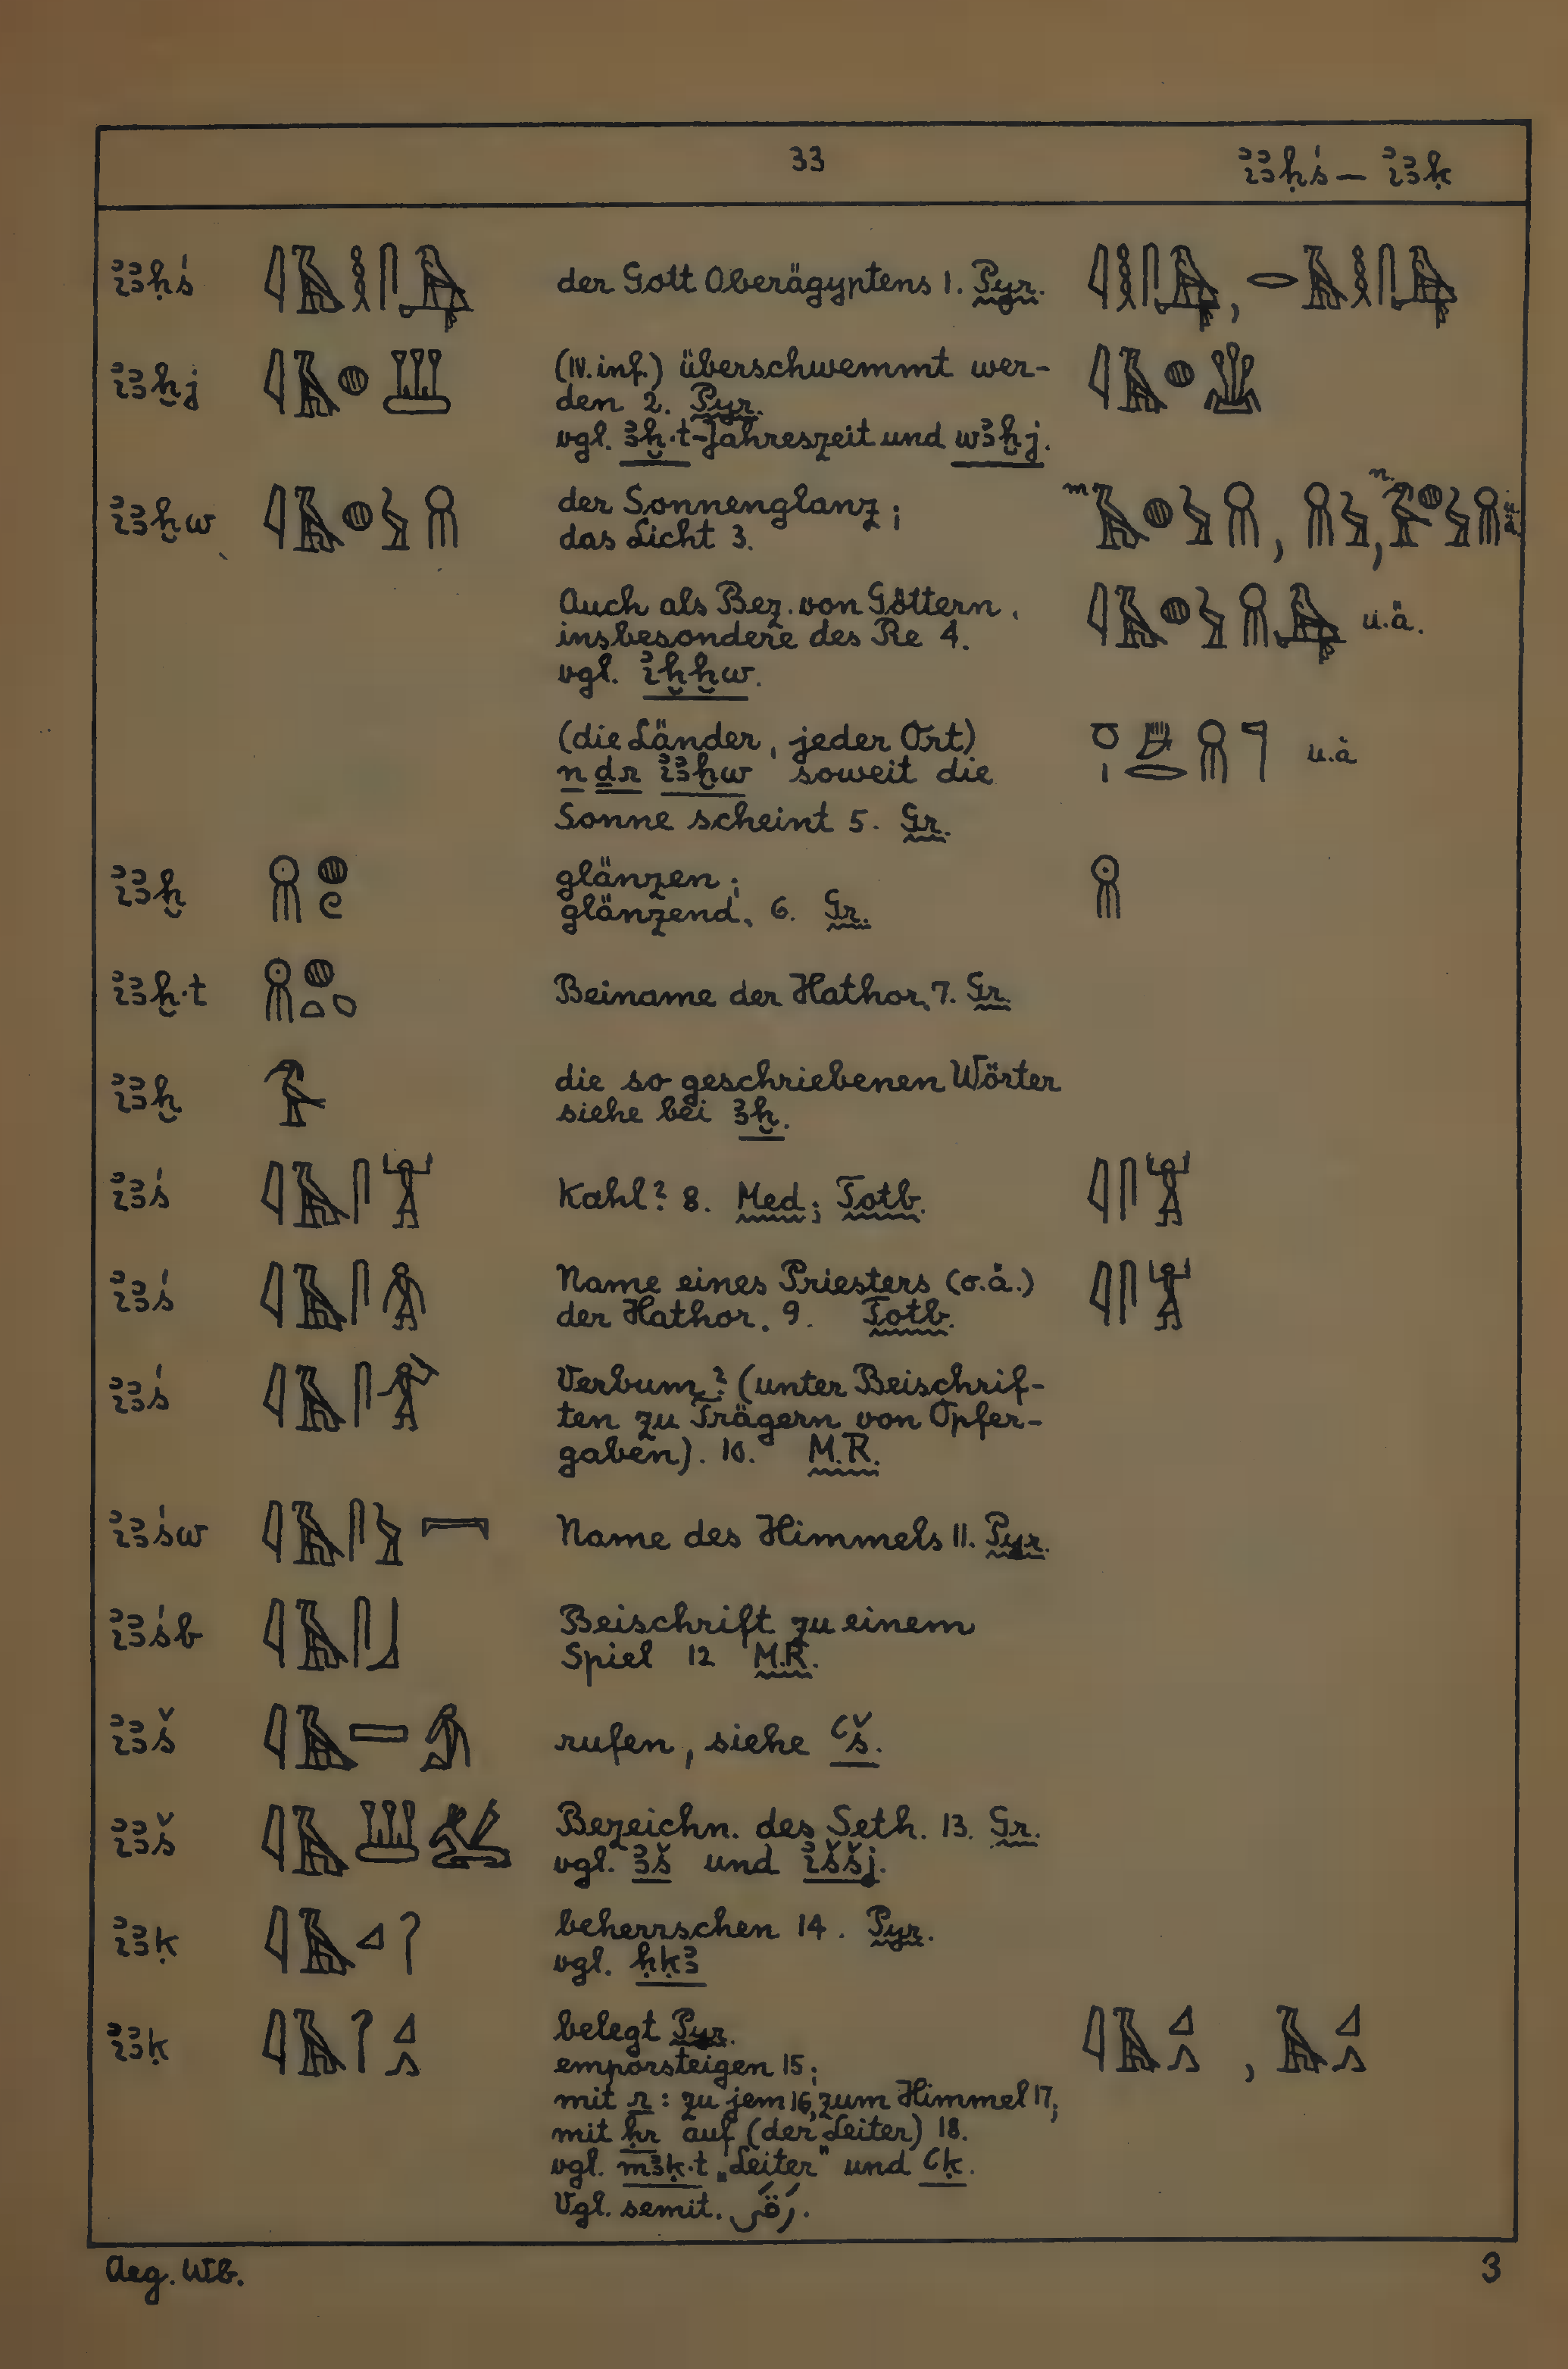 33
ꞽꜣḥś — ꞽꜣḳ
ꞽꜣḥś der Gott Oberägyptens 1. Pyr.
ꞽꜣḫj (IV. inf.) überschwemmt wer-
den 2. Pyr.
vgl. ꜣḫ·t-Jahreszeit und wꜣḫj.
ꞽꜣḫw der Sonnenglanz; m n. u.ä.
das Licht 3.
Auch als Bez. von Göttern, u.ä.
insbesondere des Re 4.
vgl. ꞽḫḫw.
(die Länder, jeder Ort) u.ä
n ḏr ꞽꜣḫw soweit die
Sonne scheint 5. Gr.
ꞽꜣḫ glänzen;
glänzend. 6. Gr.
ꞽꜣḫ·t Beiname der Hathor. 7. Gr.
ꞽꜣḫ die so geschriebenen Wörter
siehe bei ꜣḫ.
ꞽꜣś Kahl? 8. Med; Totb.
ꞽꜣś Name eines Priesters (o.ä.)
der Hathor. 9. Totb.
ꞽꜣś Verbum? (unter Beischrif-
ten zu Trägern von Opfer-
gaben). 10. M.R.
ꞽꜣśw Name des Himmels 11. Pyr.
ꞽꜣśb Beischrift zu einem
Spiel 12 M.R.
ꞽꜣš rufen, siehe ꜥš.
ꞽꜣš Bezeichn. des Seth. 13. Gr.
vgl. ꜣš und ꞽššj.
ꞽꜣḳ beherrschen 14. Pyr.
vgl. ḥḳꜣ
ꞽꜣḳ belegt Pyr.
emporsteigen 15;
mit r: zu jem 16, zum Himmel 17;
mit ḥr auf (der Leiter) 18.
vgl. mꜣḳ·t „Leiter" und ꜥḳ.
Vgl. semit. رَقَى.
Aeg. Wb. 3